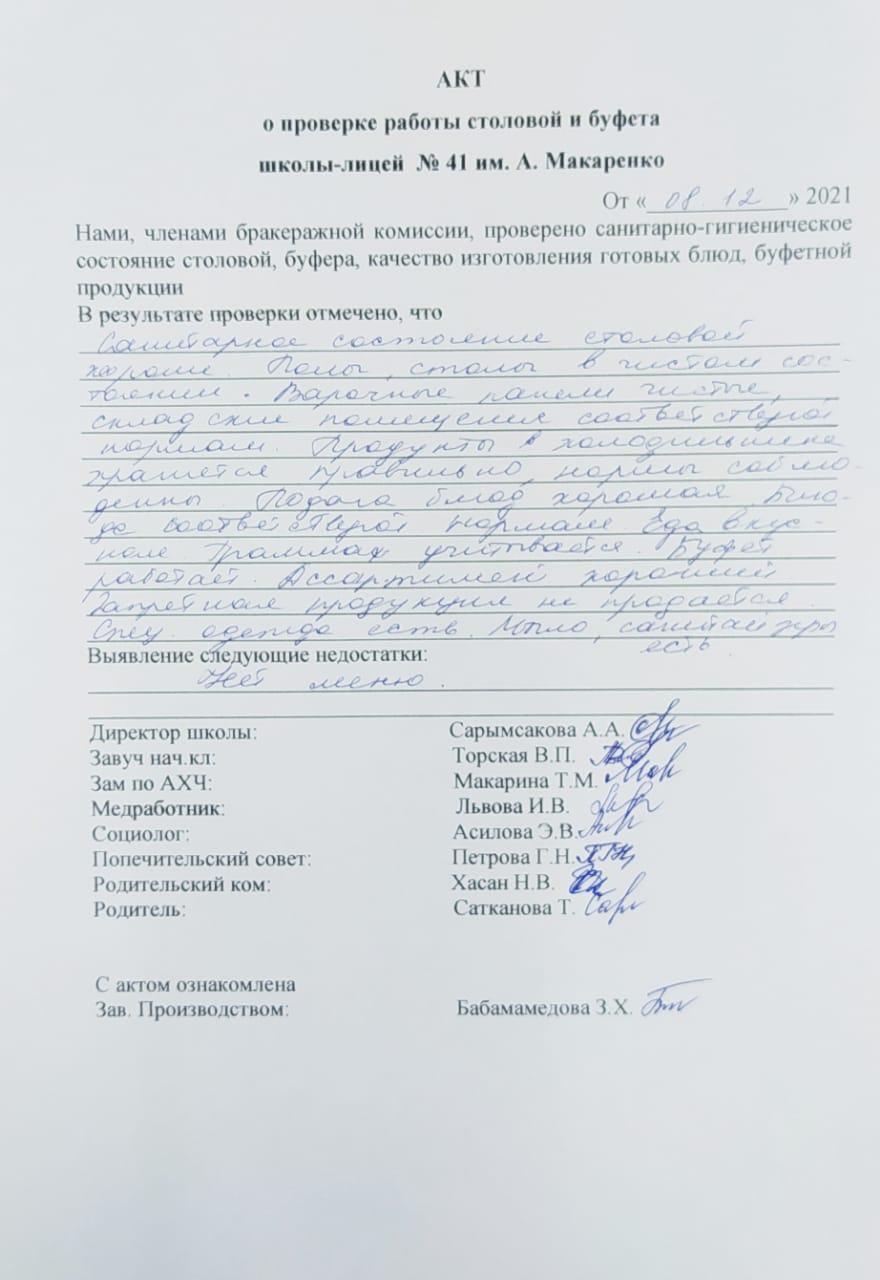 АКТ
о проверке работы столовой и буфета
школы-лицей № 41 им. А. Макаренко
От «08.12» 2021
Нами, членами бракеражной комиссии, проверено санитарно-гигиеническое
состояние столовой, буфера, качество изготовления готовых блюд, буфетной
продукции
В результате проверки отмечено, что
Санитарное состояние столовой
хорошее. Полы, столы в чистом сос-
тоянии. Варочные панели чистые,
складские помещения соответствуют
нормам. Продукты в холодильнике
хранятся правильно, нормы соблю-
дены. Подача блюд хорошая. Блю-
да соответствуют нормам. Еда вкус-
ная. Граммаж учитывается. Буфет
работает. Ассортимент хороший
Запретная продукция не продается
Спец. одежда есть. Мыло, санитайзеры
есть.
Выявление следующие недостатки:
Нет меню.
Директор школы: Сарымсакова А.А.
Завуч нач.кл: Торская В.П.
Зам по АХЧ: Макарина Т.М.
Медработник: Львова И.В.
Социолог: Асилова Э.В.
Попечительский совет: Петрова Г.Н.
Родительский ком: Хасан Н.В.
Родитель: Сатканова Т.
С актом ознакомлена
Зав. Производством: Бабамамедова З.Х.